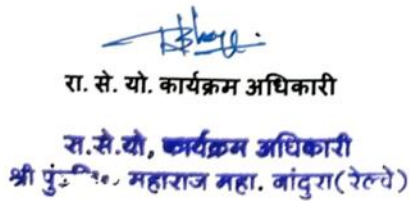 रा. से. यो. कार्यक्रम अधिकारी
रा.से.यो, कार्यक्रम अधिकारी
श्री महाराज महा. नांदुरा(रेल्वे)